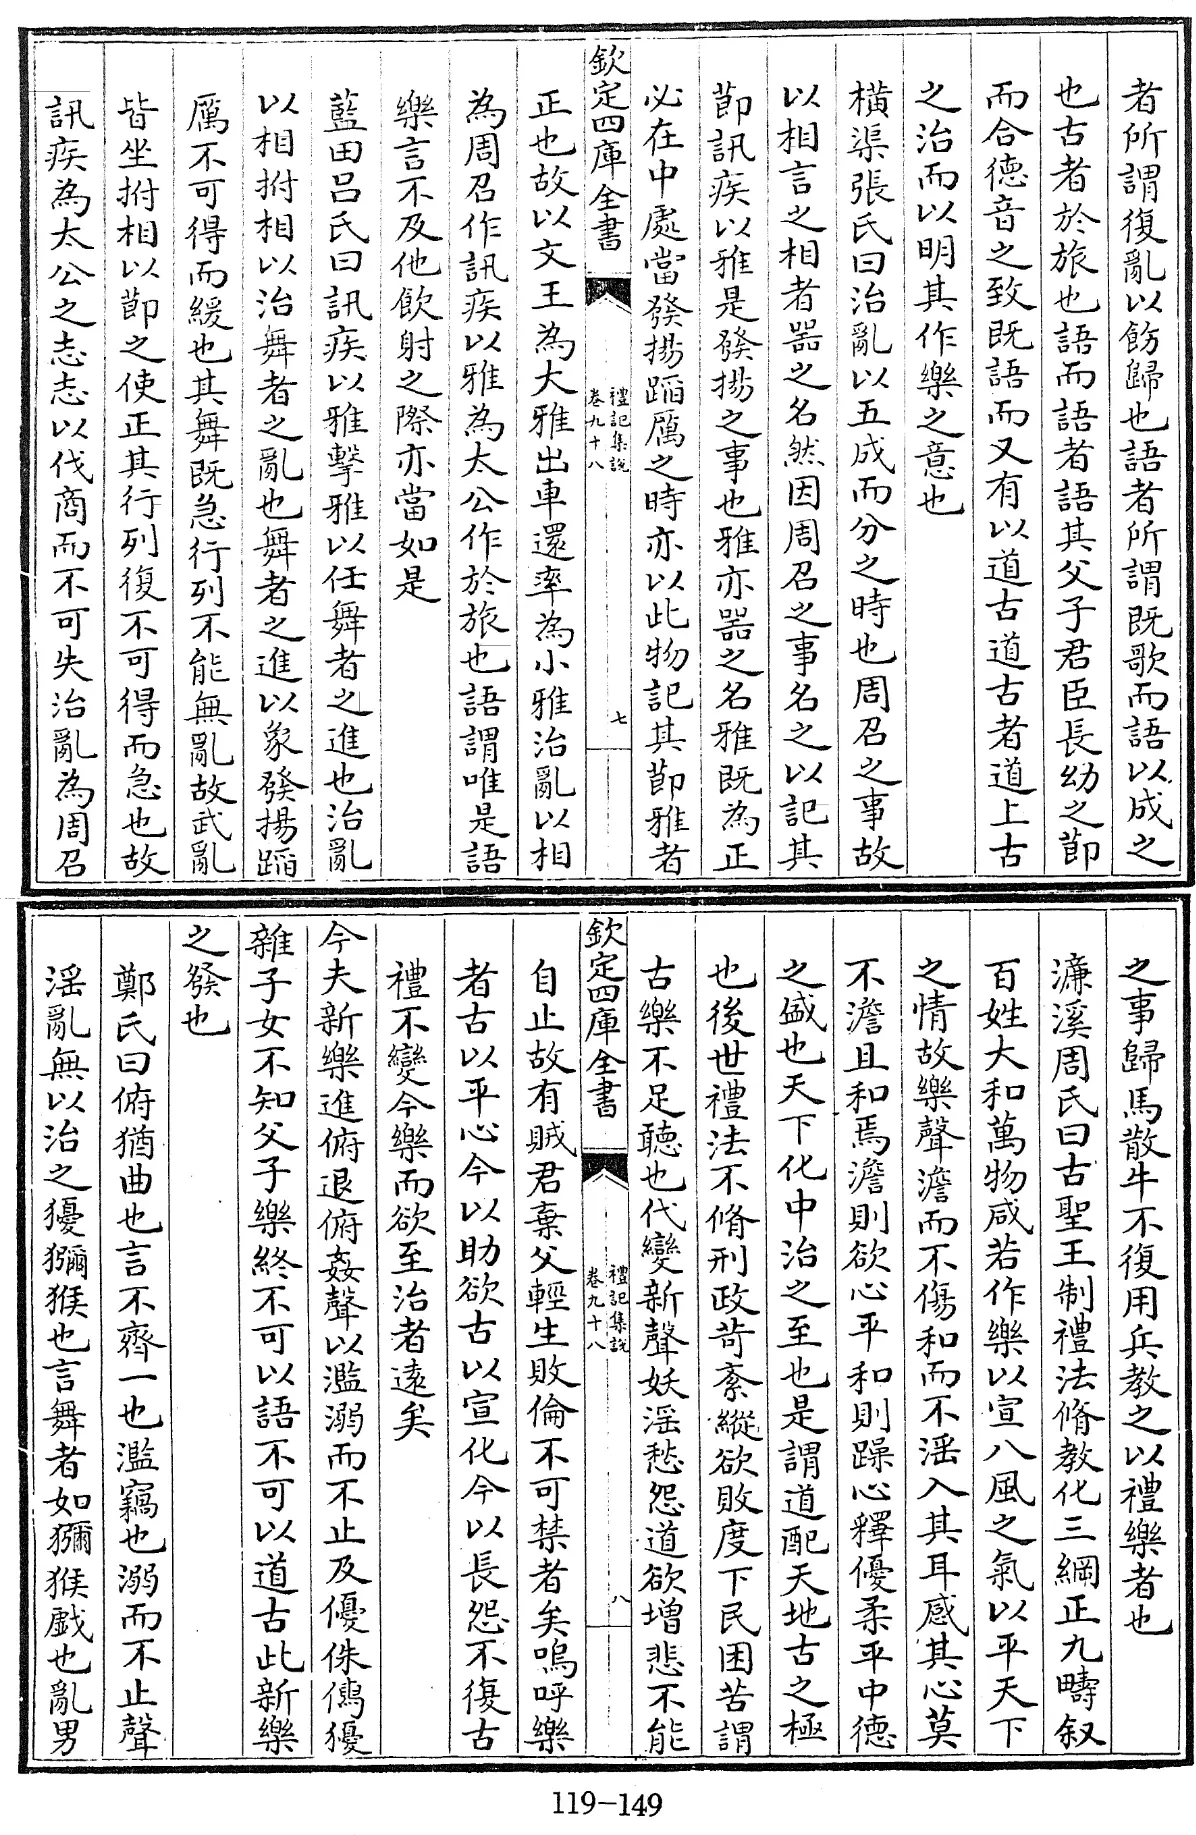 者所謂復亂以飭歸也語者所謂既歌而語以成之
也古者於旅也語而語者語其父子君臣長幼之節
而合德音之致既語而又有以道古道古者道上古
之治而以明其作樂之意也
橫渠張氏曰治亂以五成而分之時也周召之事故
以相言之相者器之名然因周召之事名之以記其
節訊疾以雅是發揚之事也雅亦器之名雅既為正
必在中處當發揚蹈厲之時亦以此物記其節雅者
欽定四庫全書
禮記集說
卷九十八
七
正也故以文王為大雅出車還率為小雅治亂以相
為周召作訊疾以雅為太公作於旅也語謂唯是語
樂言不及他飲射之際亦當如是
藍田呂氏曰訊疾以雅擊雅以任舞者之進也治亂
以相拊相以治舞者之亂也舞者之進以象發揚蹈
厲不可得而緩也其舞既急行列不能無亂故武亂
皆坐拊相以節之使正其行列復不可得而急也故
訊疾為太公之志志以伐商而不可失治亂為周召
之事歸馬散牛不復用兵教之以禮樂者也
濂溪周氏曰古聖王制禮法脩教化三綱正九疇叙
百姓大和萬物咸若作樂以宣八風之氣以平天下
之情故樂聲澹而不傷和而不淫入其耳感其心莫
不澹且和焉澹則欲心平和則躁心釋優柔平中德
之盛也天下化中治之至也是謂道配天地古之極
也後世禮法不脩刑政苛紊縱欲敗度下民困苦謂
古樂不足聽也代變新聲妖淫愁怨道欲增悲不能
欽定四庫全書
禮記集說
卷九十八
八
自止故有賊君棄父輕生敗倫不可禁者矣嗚呼樂
者古以平心今以助欲古以宣化今以長怨不復古
禮不變今樂而欲至治者遠矣
今夫新樂進俯退俯姦聲以濫溺而不止及優侏儒獶
雜子女不知父子樂終不可以語不可以道古此新樂
之發也
鄭氏曰俯猶曲也言不齊一也濫竊也溺而不止聲
淫亂無以治之獶獼猴也言舞者如獼猴戲也亂男
119-149